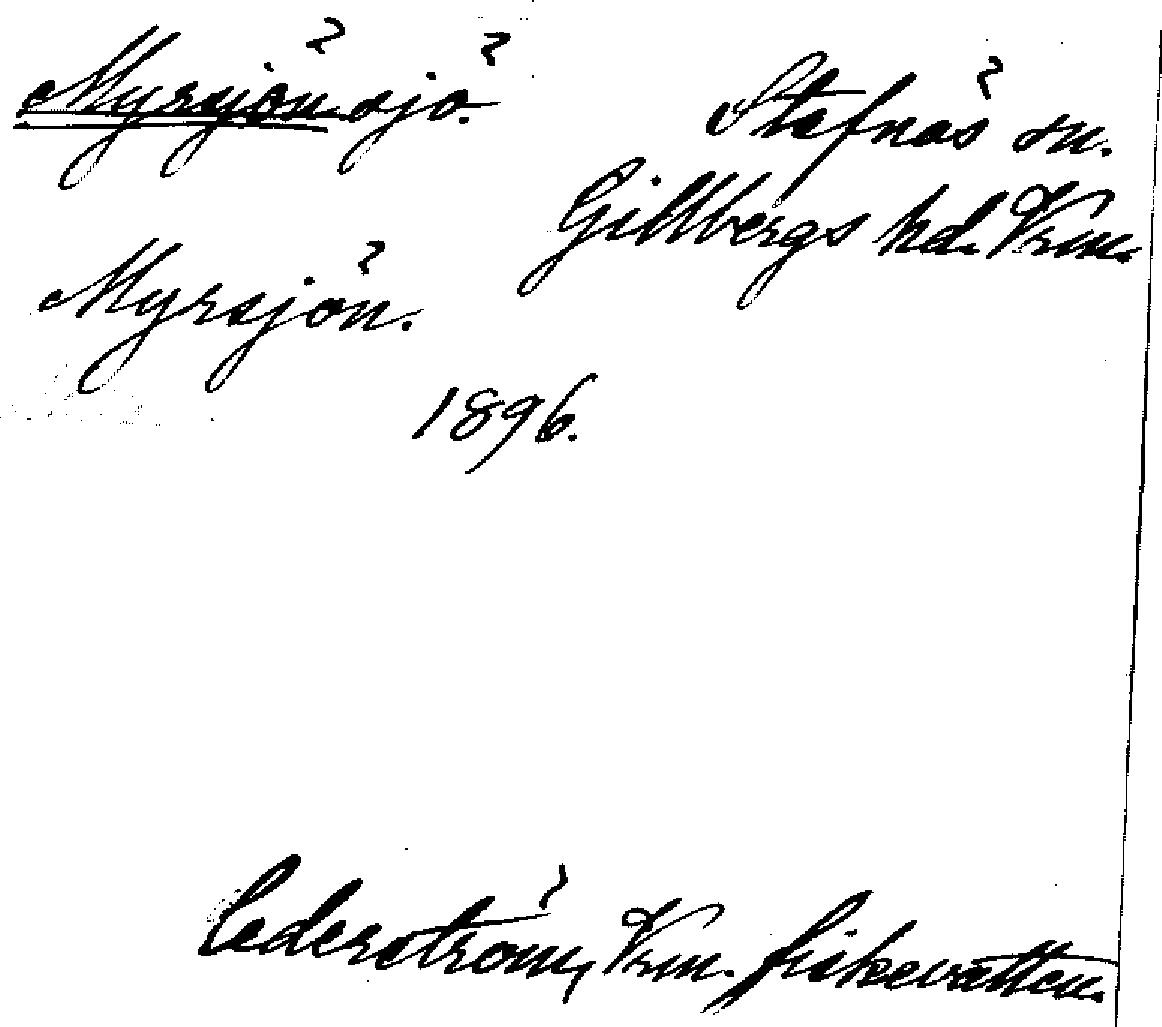 Myrsjön sjö.
Stafnäs sn.
Gillbergs hd. Vrm.
Myrsjön.
1896.
Cederström, Vrm. fiskevatten.